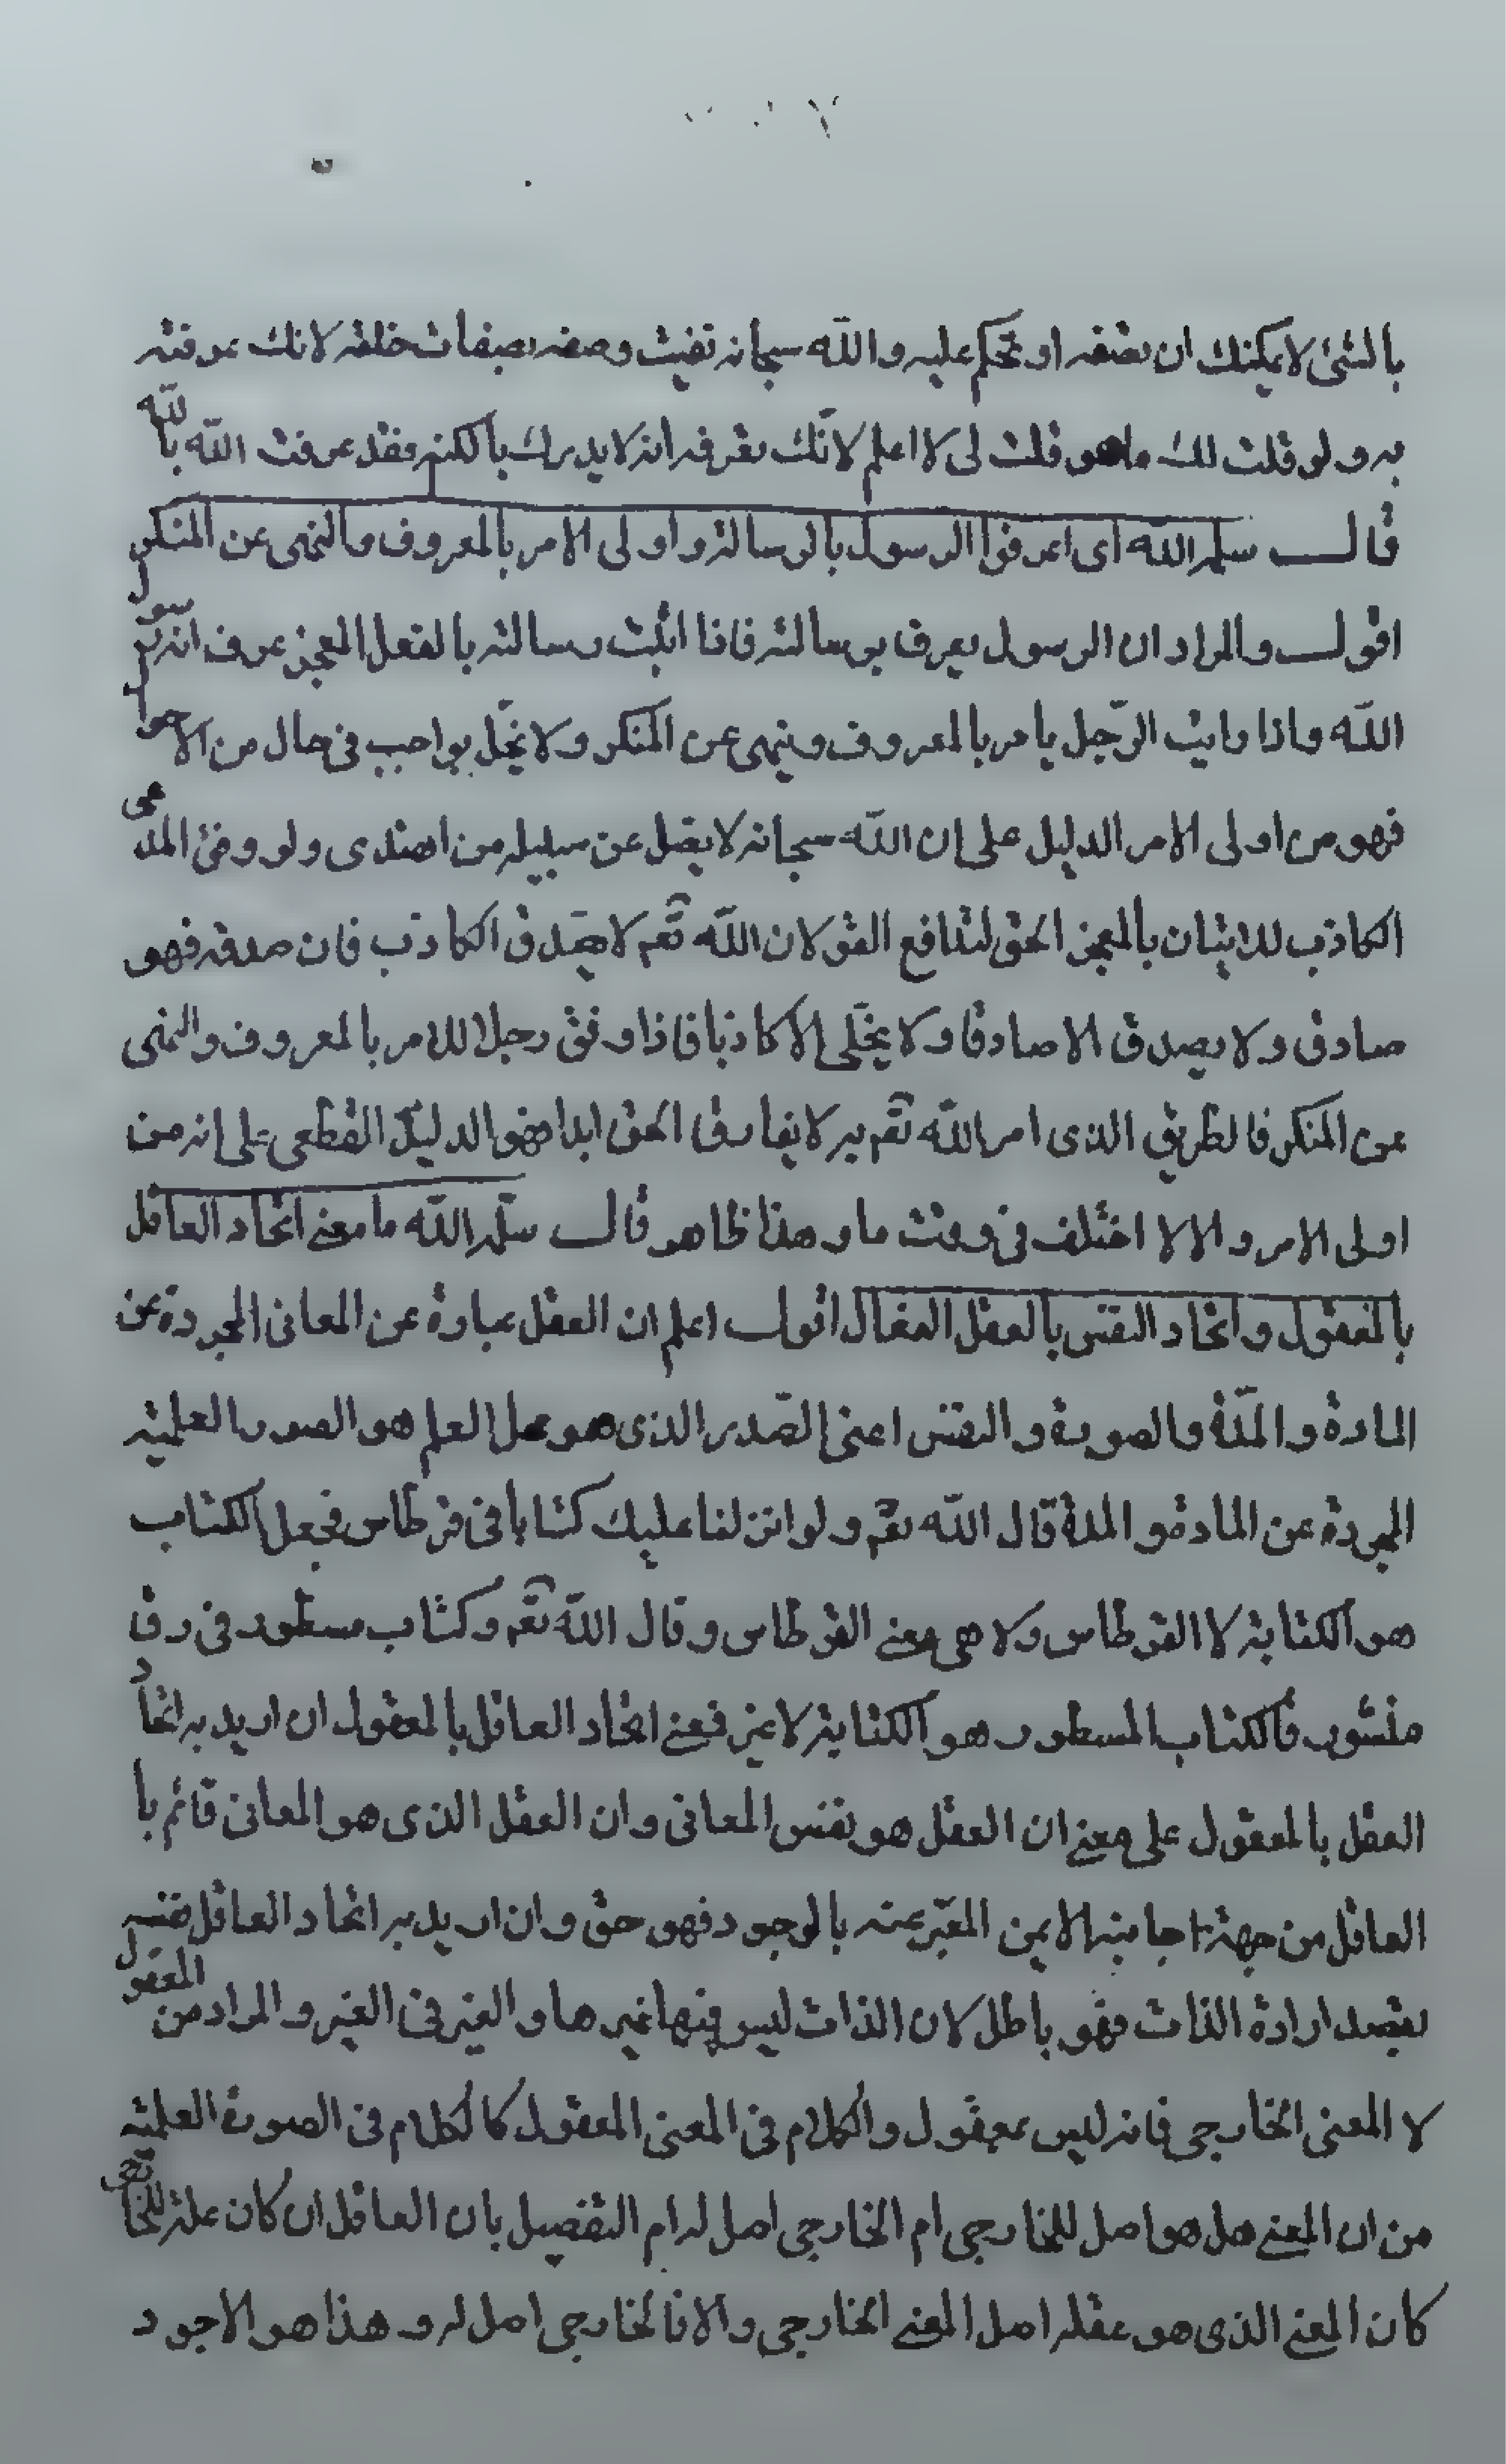 بالشئ لا يمكنك ان تصفه او تحكم عليه والله سبحانه نفيت وصفه بصفات خلقه لانك عرفته
به ولو قلت لك ما هو قلت لى لا اعلم لانّك تعرفه انه لا يدرك بالكنه فقد عرفت الله بالله
قال سلمه الله اى اعرفوا الرسول بالرسالة واولى الامر بالمعروف والنهى عن المنكر
اقول والمراد ان الرسول يعرف برسالته فاذا اثبت رسالته بالفعل المعجز عرف انّه رسول
الله واذا رايت الرّجل يامر بالمعروف وينهى عن المنكر ولا يخلّ بواجب فى حال من الاحوال
فهو من اولى الامر الدليل على ان الله سبحانه لا يضل عن سبيله من اهتدى ولو وفق المدعى
الكاذب للاتيان بالمعجز الحق لتدافع الحق لان الله تعم لا يصدق الكاذب فان صدقه فهو
صادق ولا يصدق الا صادقا ولا يخلّى الا كاذبا فاذا وفق رجلا للامر بالمعروف والنهى
عن المنكر فالطريق الذى امر الله تعم به لا يفارق الحق ابدا فهو الدليل القطعى على انه من
اولى الامر والا لا اختلف فى وقت ما وهذا ظاهر قال سلّمه الله ما معنى اتحاد العاقل
بالمعقول واتحاد النفس بالعقل الفعال اقول اعلم ان العقل عبارة عن المعانى المجردة عن
المادة والمدّة والصورة والنفس اعنى الصّدر الذى هو محل العلم هو الصور العلمية
المجردة عن المادة والمدة قال الله تعم ولو انزلنا عليك كتابا فى قرطاس فجعل الكتاب
هو الكتابة لا القرطاس ولا هى مع القرطاس وقال الله تعم وكتاب مسطور فى رق
منشور فالكتاب المسطور هو الكتابة لا غير فمعنى اتحاد العاقل بالمعقول ان اريد به اتحاد
العقل بالمعقول على معنى ان العقل هو نفس المعانى وان العقل الذى هو المعانى قائم با
العاقل من جهة جانبه الايمن المعبّر عنه بالوجود فهو حق وان اريد به اتحاد العاقل نفسه
بقصد ارادة الذات فهو باطل لان الذات ليس فيها غيرها والغير فى الغير والمراد من المعقول
لا المعنى الخارجى فانه ليس بمعقول والكلام فى المعنى المعقول كالكلام فى الصورة العلمية
من ان المعنى هل هو اصل للخارجى ام الخارجى اصل له ام التفصيل بان العاقل ان كان علة للخارجى
كان المعنى الذى هو عقله اصل المعنى الخارجى والا فالخارجى اصل له وهذا هو الاجود